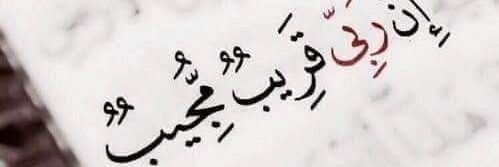 إن ربيّ قَرِيبٌ مُّجِيبٌ